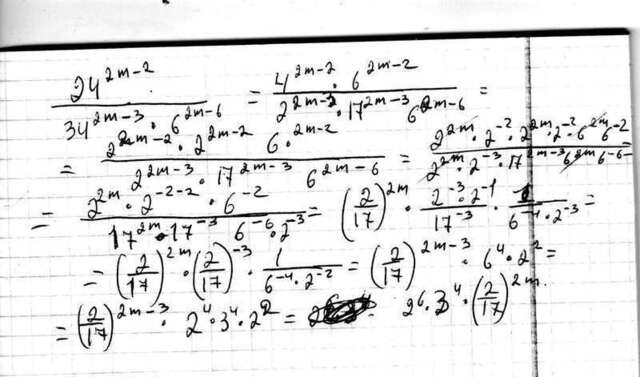 24^{2m-2} / (34^{2m-3} · 6^{2m-6}) = (4^{2m-2} · 6^{2m-2}) / (2^{2m-3} · 17^{2m-3} 6^{2m-6}) =
= (2^{2m-2} · 2^{2m-2} 6^{2m-2}) / (2^{2m-3} · 17^{2m-3} 6^{2m-6}) = (2^{2m} · 2^{-2} · 2^{2m} · 2^{-2} · 6^{2m} 6^{-2}) / (2^{2m} · 2^{-3} · 17^{2m-3} 6^{2m} 6^{-6}) =
= (2^{2m} · 2^{-2-2} · 6^{-2}) / (17^{2m} · 17^{-3} 6^{-6} · 2^{-3}) = (2/17)^{2m} · (2^{-3} · 2^{-1}) / 17^{-3} · 1 / (6^{-4} · 2^{-3}) =
= (2/17)^{2m} · (2/17)^{-3} · 1 / (6^{-4} · 2^{-2}) = (2/17)^{2m-3} · 6^4 · 2^2 =
= (2/17)^{2m-3} · 2^4 · 3^4 · 2^2 = 2^6 · 3^4 · (2/17)^{2m}